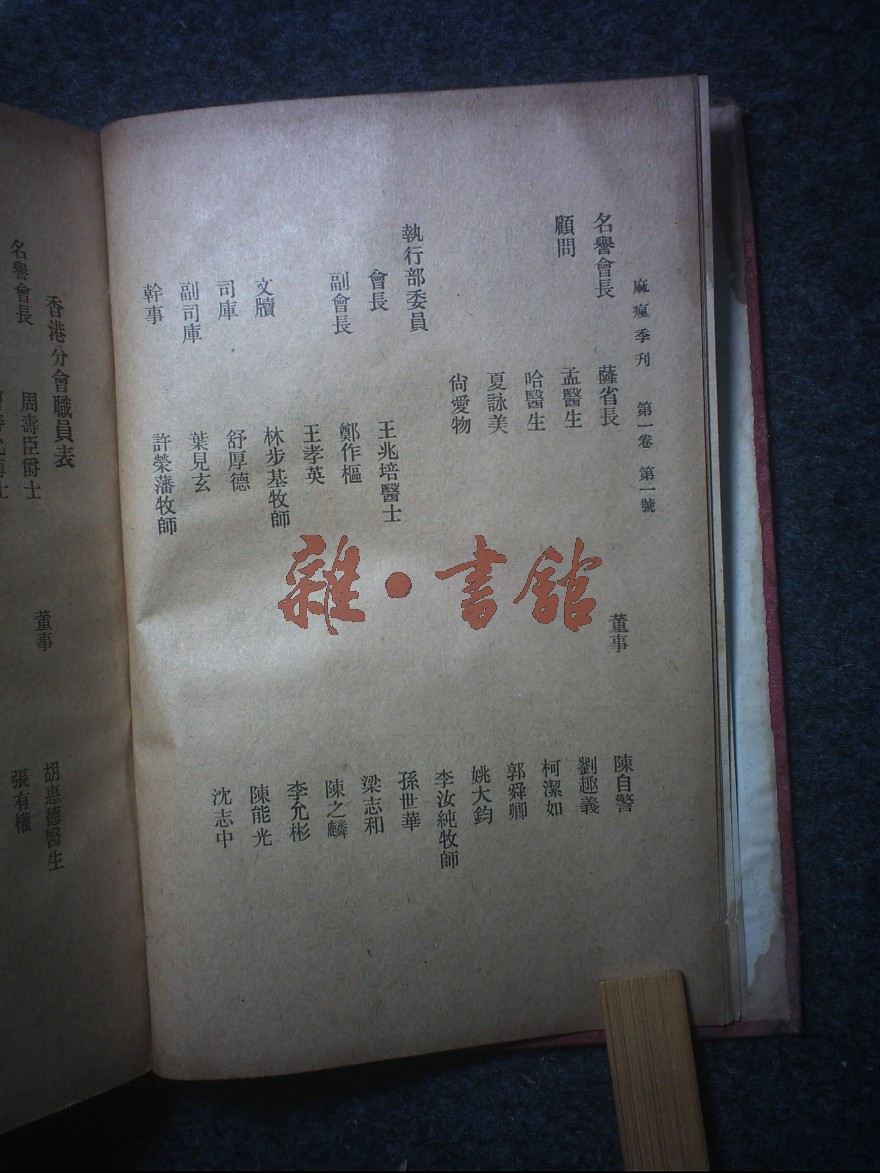 麻瘋季刊　第一卷　第一號
名譽會長　薩省長
顧問　孟醫生
哈醫生
夏詠美
尙愛物
執行部委員
會長　王兆培醫士
副會長　鄭作樞
王孝英
文牘　林步基牧師
司庫　舒厚德
副司庫　葉見玄
幹事　許榮藩牧師
董事　陳自警
劉趣義
柯潔如
郭舜卿
姚大鈞
李汝純牧師
孫世華
梁志和
陳之麟
李允彬
陳能光
沈志中
香港分會職員表
名譽會長　周壽臣爵士
董事　胡惠德醫生
張有權
雜·書館